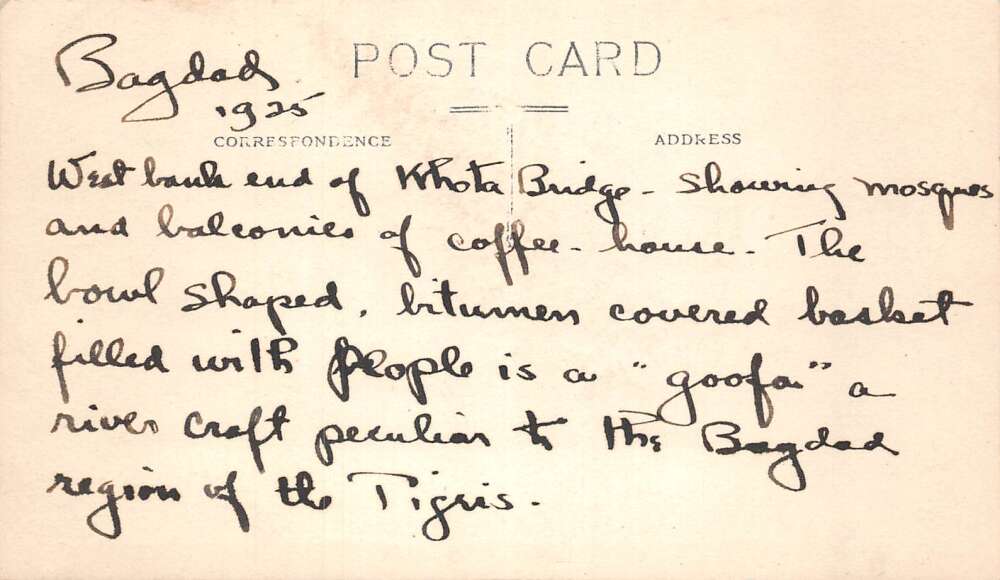 Bagdad
POST CARD
1925
CORRESPONDENCE
ADDRESS
West bank end of Khota Bridge - showing mosques
and balconies of coffee-house. The
bowl shaped, bitumen covered basket
filled with people is a "goofa" a
river craft peculiar to the Bagdad
region of the Tigris.